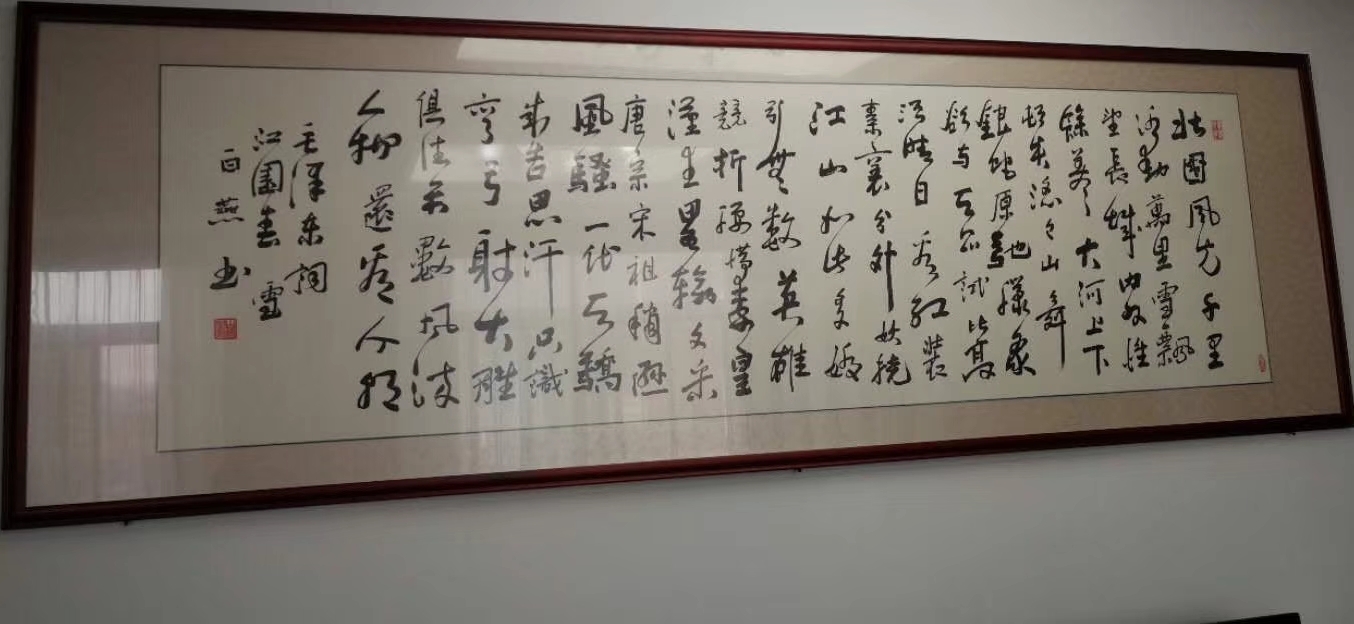 北國風光千里
冰封萬里雪飄
望長城内外惟
餘莽々大河上下
頓失滔々山舞
銀蛇原馳蠟象
欲与天公試比高
須晴日看紅裝
素裹分外妖嬈
江山如此多嬌
引無數英雄
競折腰惜秦皇
漢主畧輸文采
唐宗宋祖稍遜
風騷一代天驕
成吉思汗只識
彎弓射大雕
俱往矣數風流
人物還看今朝
毛澤東詞
沁園春 雪
白燕书